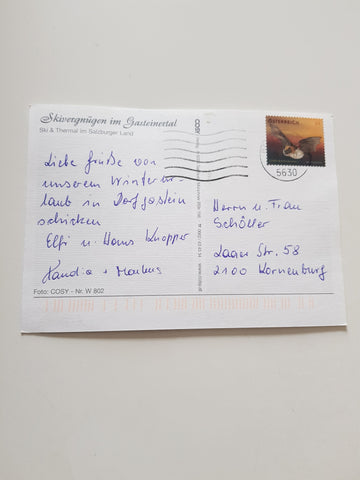 Skivergnügen im Gasteinertal
Ski & Thermal im Salzburger Land
Liebe Grüße von
unserem Winterur-
laub in Dorfgastein
schicken
Elfi u. Hans Knopper
+ Markus
Foto: COSY - Nr. W 802
COSY
ÖSTERREICH
5630
Herrn u. Frau
Schöller
Lager Str. 58
2100 Kornenburg